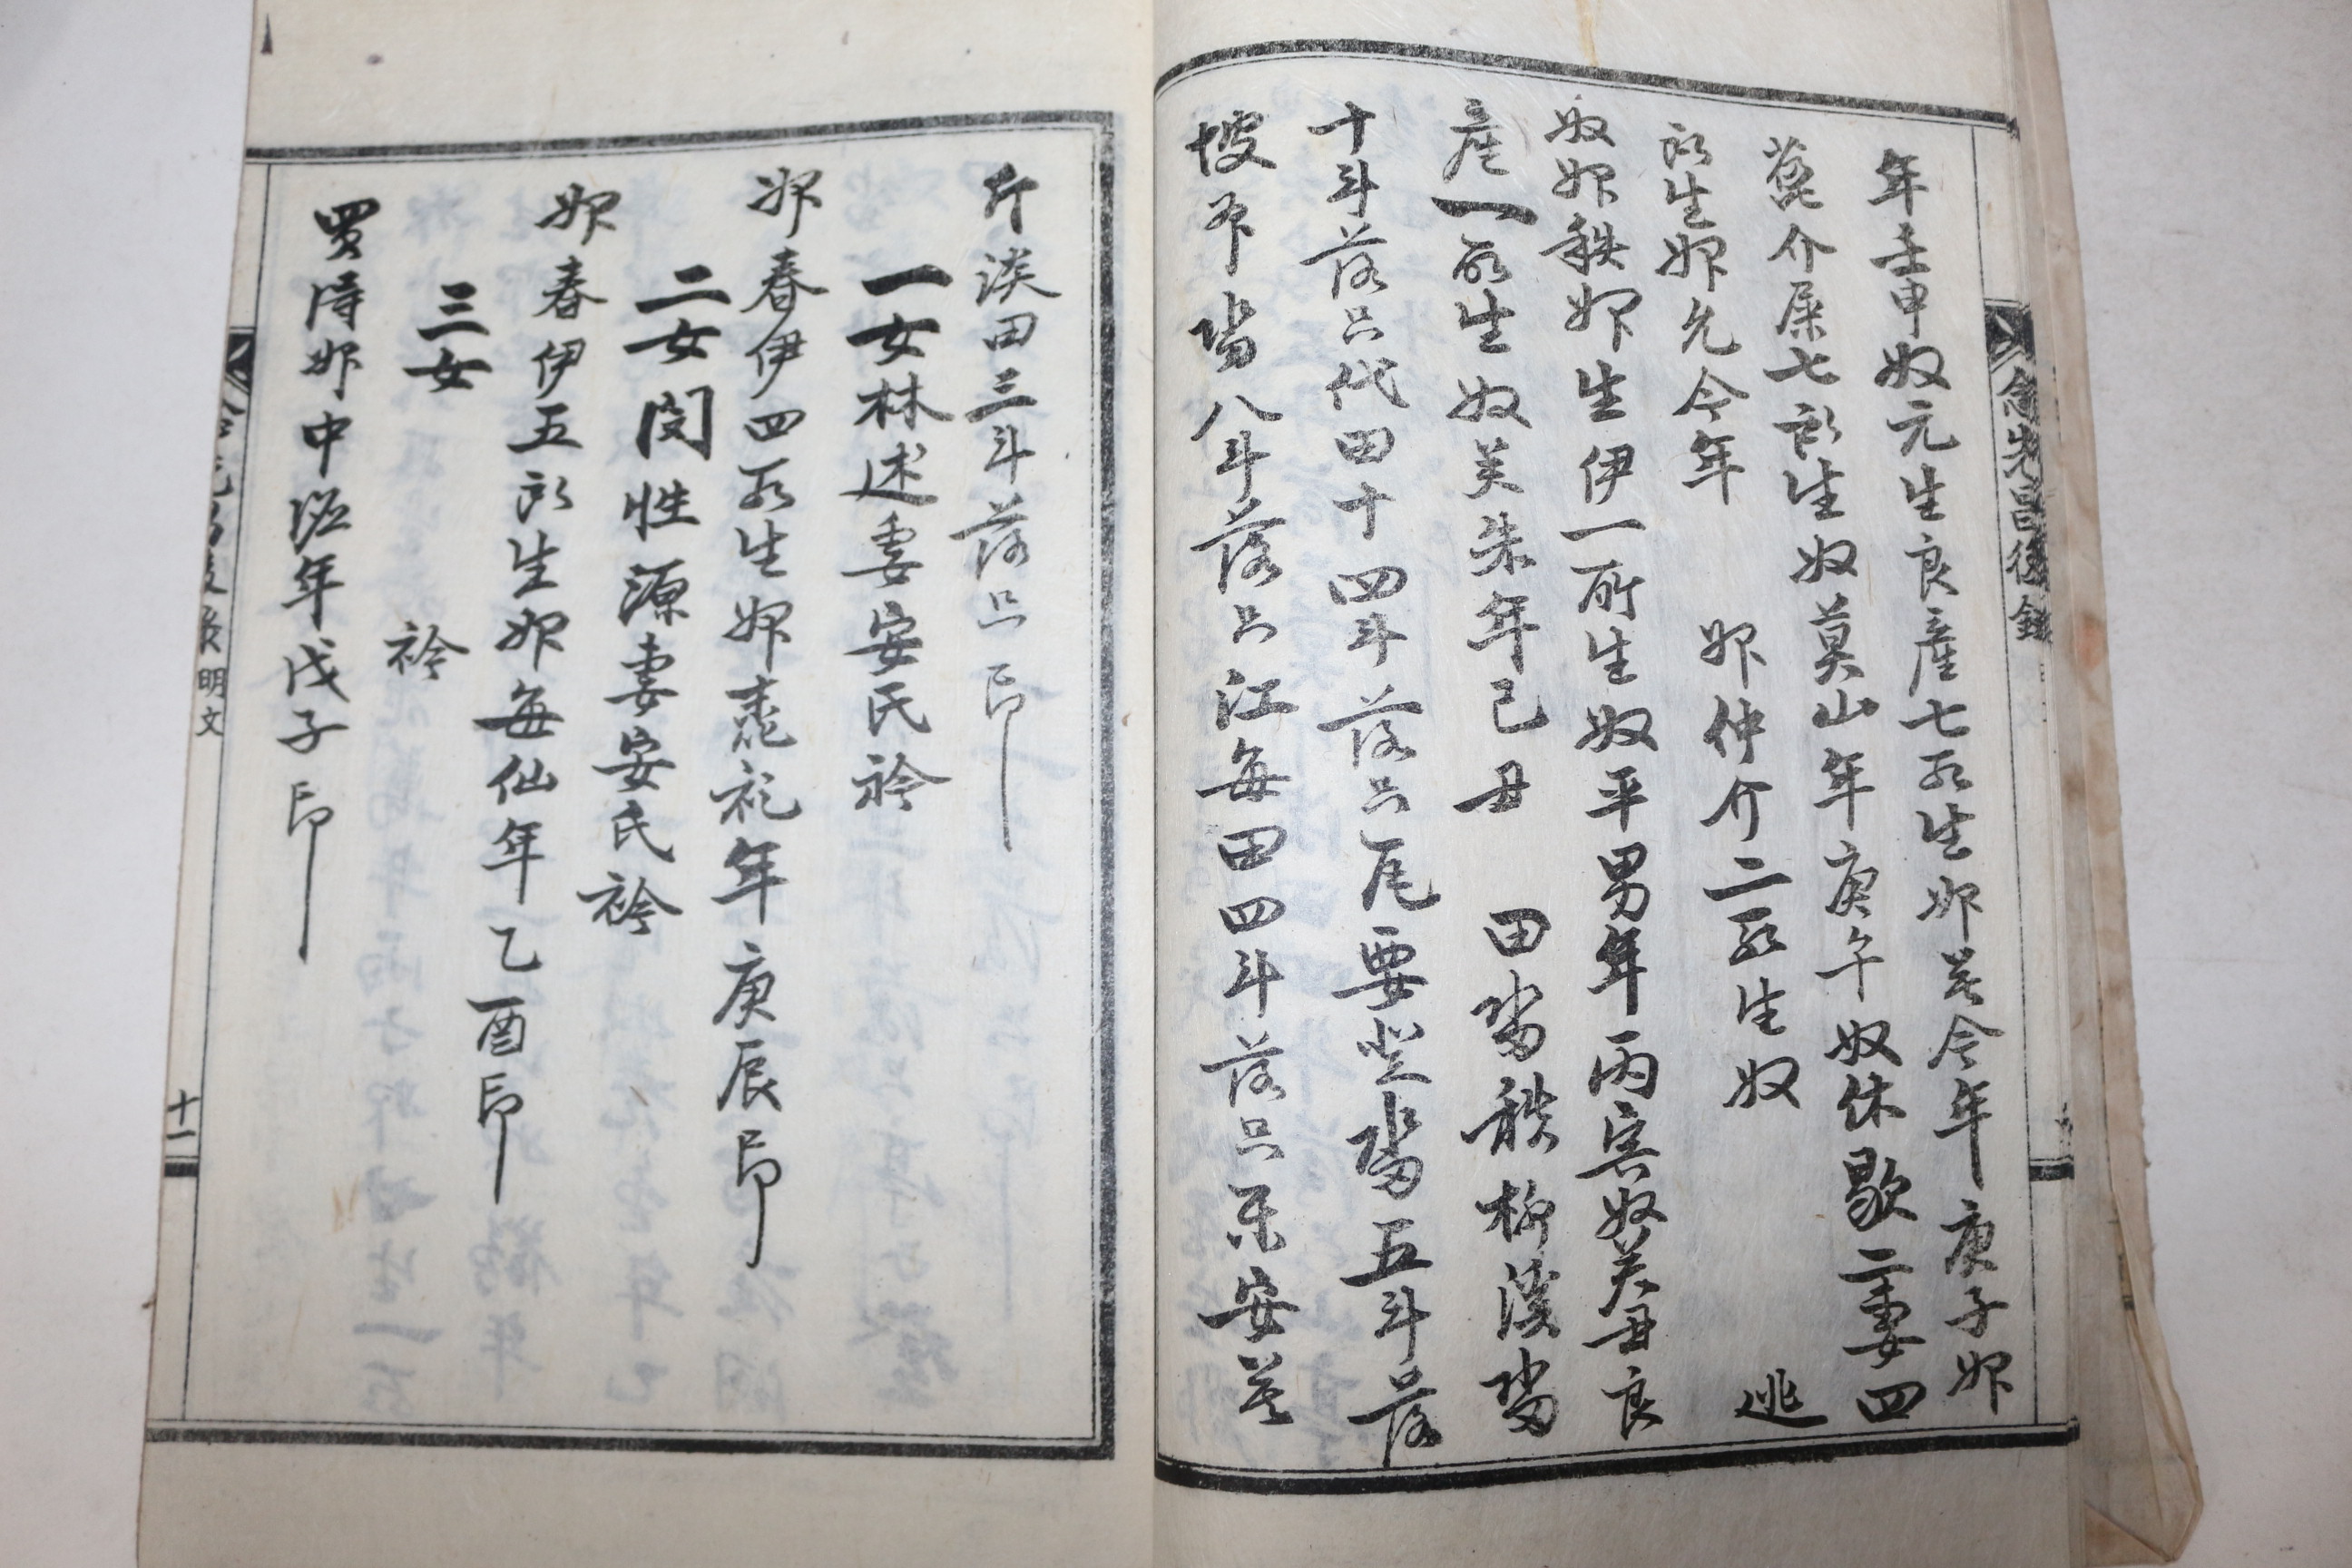 年壬申奴元生良産七所生婢今年庚子婢
介屎七所生奴莫山年庚午奴休歇二妻四
所生婢允今年 婢仲介二所生奴 逃
奴婢秩婢生伊一所生奴平男年丙寅奴關丑良
産一所生奴关朱年己丑 田畓秩柳溪畓
十斗落只代田十四斗落只尾要堂畓五斗落
坡下畓八斗落只江每田四斗落只安
念先昌後錄
斤淡田三斗落只印
一女林述妻安氏衿
婢春伊四所生婢年庚辰印
二女閔性源妻安氏衿
婢春伊五所生婢每仙年乙酉印
三女 衿
買得婢中年戊子印
明文
十一